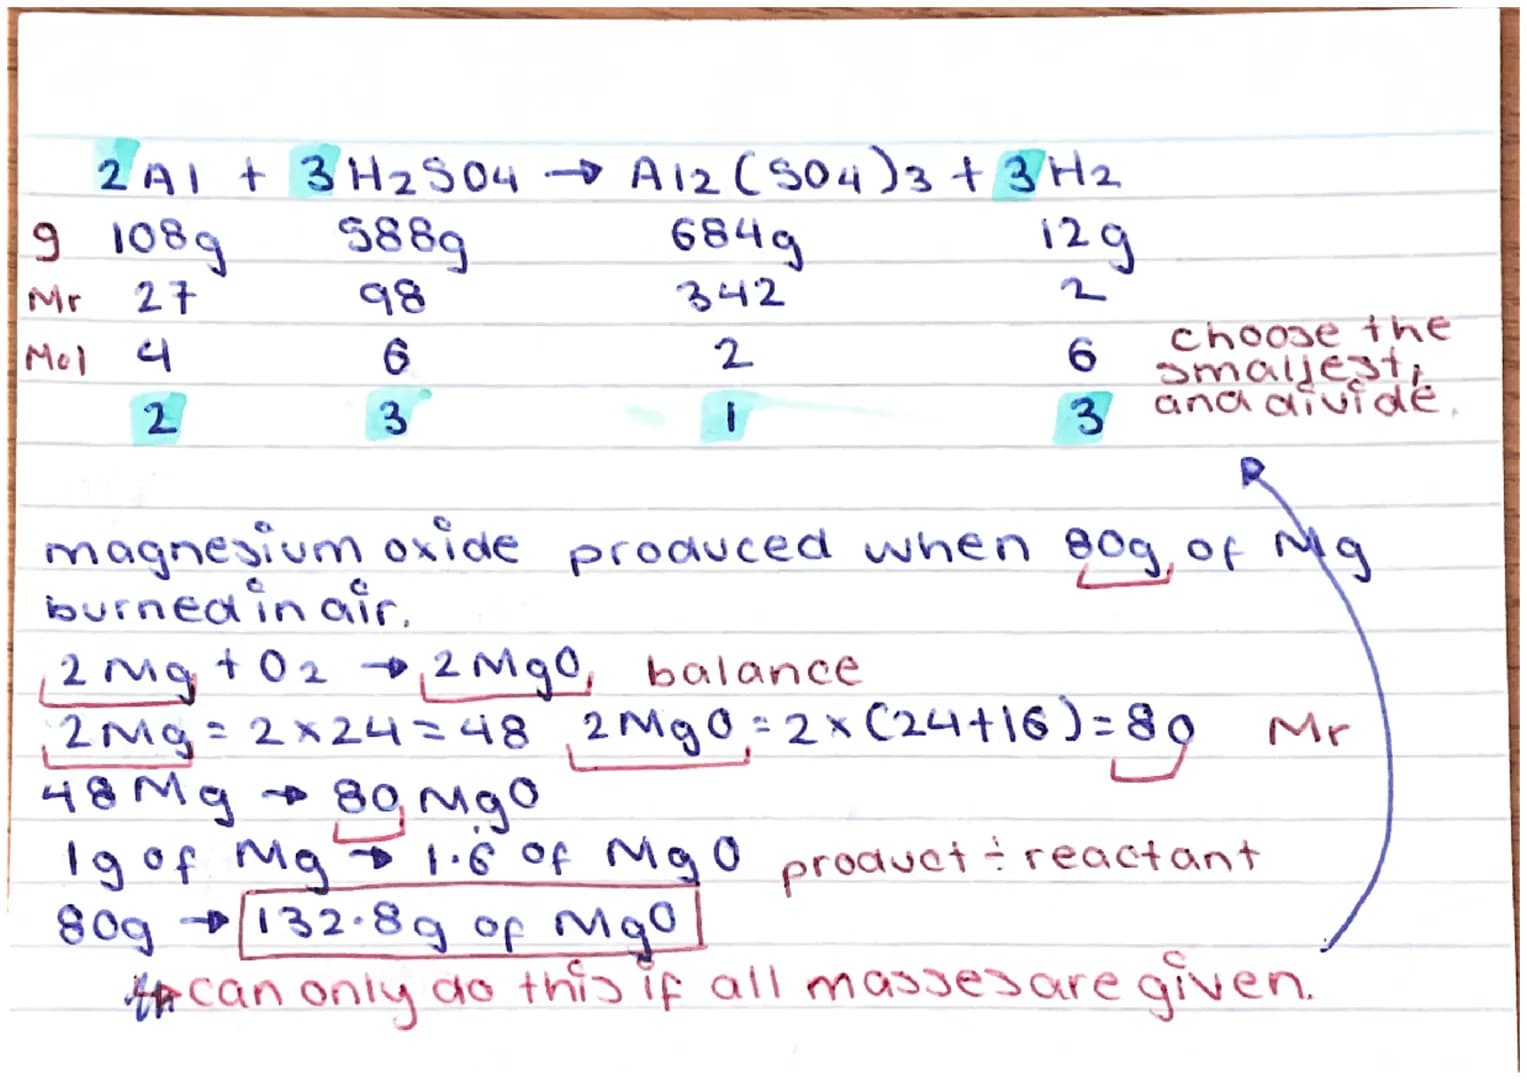 2Al + 3H2SO4 → Al2(SO4)3 + 3H2
g 108g 588g 684g 12g
Mr 27 98 342 2
Mol 4 6 2 6 choose the smallest, and divide.
2 3 1 3
magnesium oxide produced when 80g of Mg
burned in air.
2Mg + O2 → 2MgO balance
2Mg = 2×24 = 48 2MgO = 2×(24+16) = 80 Mr
48 Mg → 80 MgO
1g of Mg → 1.6̇ of MgO product ÷ reactant
80g → 132.8g of MgO
↳ can only do this if all masses are given.